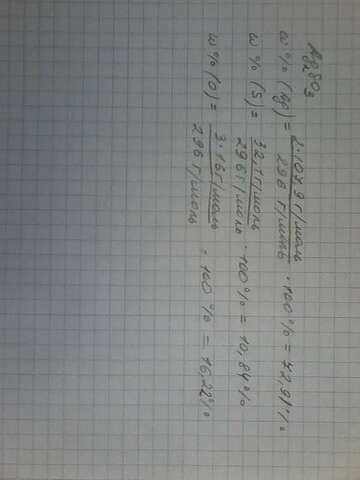 Ag₂SO₃
ω% (Ag) = 2·107,9 г/моль / 296 г/моль · 100% = 72,91%
ω% (S) = 32,1 г/моль / 296 г/моль · 100% = 10,84%
ω% (O) = 3·16 г/моль / 296 г/моль = 100% = 16,22%